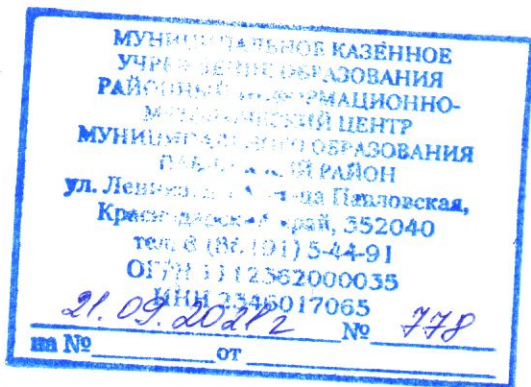 МУНИЦИПАЛЬНОЕ КАЗЁННОЕ
УЧРЕЖДЕНИЕ ОБРАЗОВАНИЯ
РАЙОННЫЙ ИНФОРМАЦИОННО-
МЕТОДИЧЕСКИЙ ЦЕНТР
МУНИЦИПАЛЬНОГО ОБРАЗОВАНИЯ
ПАВЛОВСКИЙ РАЙОН
ул. Павловская,
Краснодарский край, 352040
тел. 5-44-91
ОГРН 1112362000035
ИНН 2346017065
21.09.2021г № 778
на № от